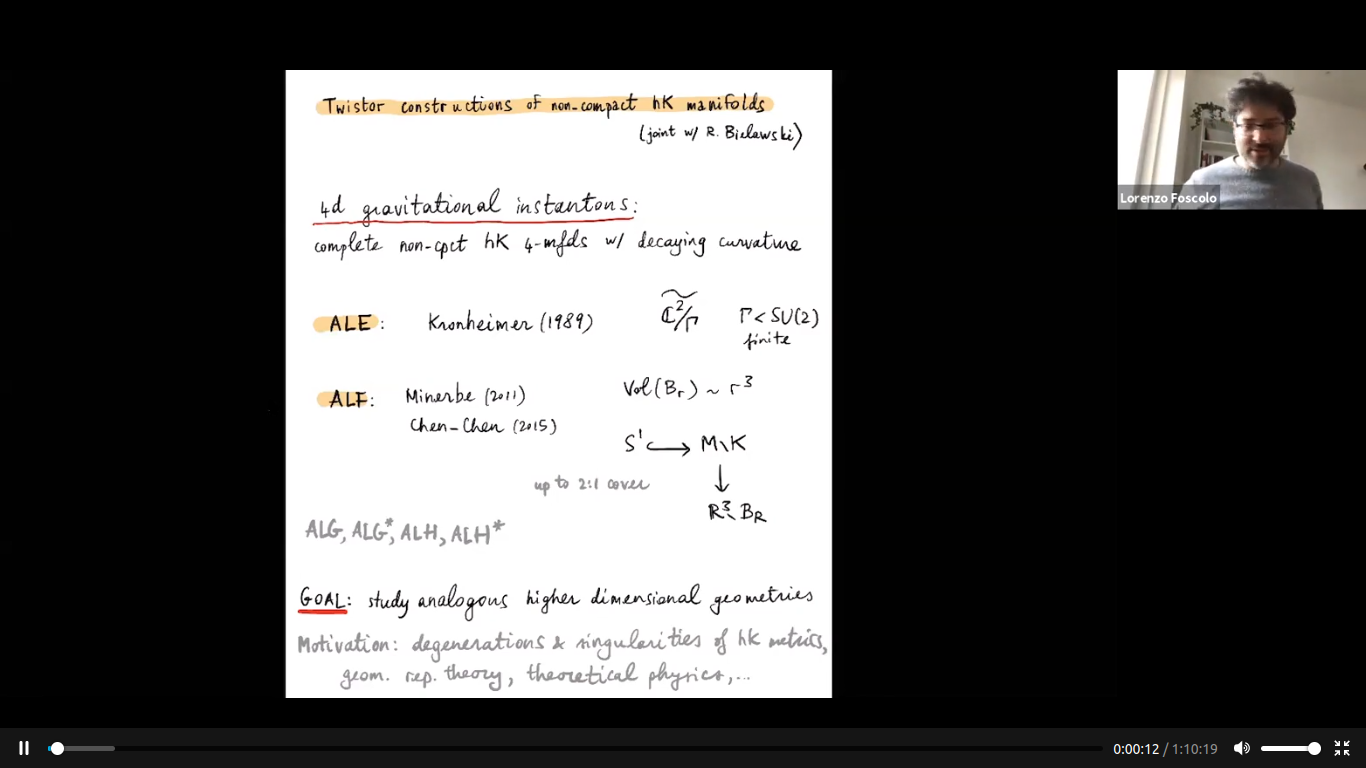 Twistor constructions of non-compact hK manifolds
(joint w/ R. Bielawski)
4d gravitational instantons:
complete non-cpct hK 4-mfds w/ decaying curvature
ALE: Kronheimer (1989) ℂ²/Γ Γ < SU(2)
finite
ALF: Minerbe (2011) Vol(B_r) ~ r³
Chen-Chen (2015)
S¹ ↪ M\K
↓
up to 2:1 cover
ℝ³\B_R
ALG, ALG*, ALH, ALH*
GOAL: study analogous higher dimensional geometries
Motivation: degenerations & singularities of hK metrics,
geom. rep. theory, theoretical physics,...
Lorenzo Foscolo
0:00:12 / 1:10:19